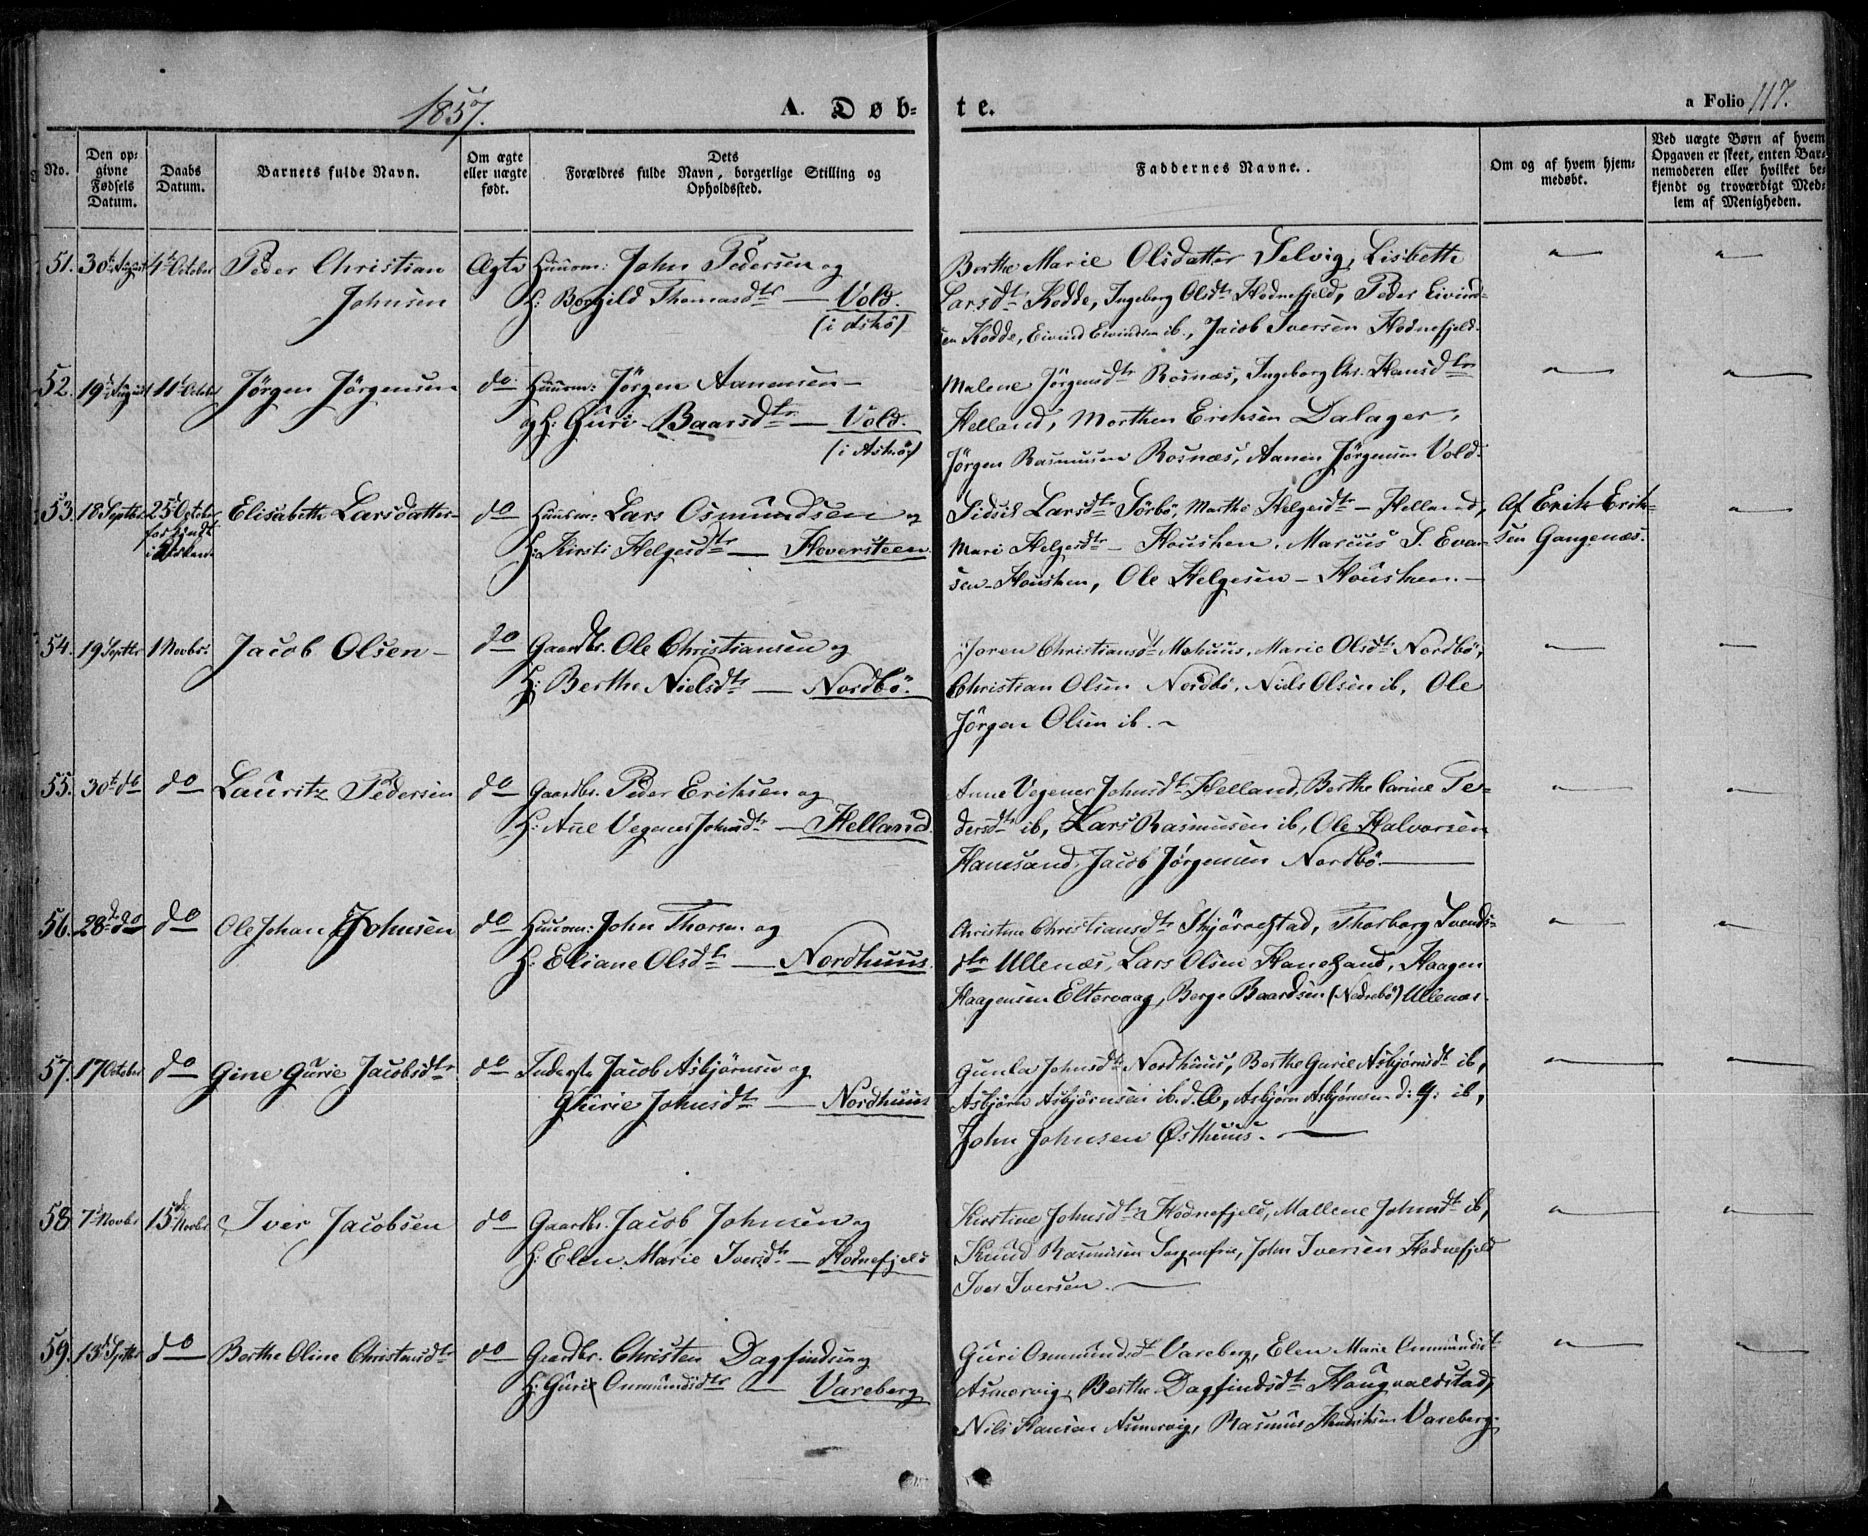 1857.
A. Døb-
te.
a Folio 117.
No.
Den op-
givne
Fødsels
Datum.
Daabs
Datum.
Barnets fulde Navn.
Om ægte
eller uægte
født.
Dets
Forældres fulde Navn, borgerlige Stilling og
Opholdssted.
Faddernes Navne.
Om og af hvem hjem-
medøbt.
Ved uægte Børn af hvem
Opgaven er skeet, enten Bar-
nemoderen eller hvilket be-
kjendt og troværdigt Med-
lem af Menigheden.
51. 30te August 4de October Peder Christian Ægte Huusm: John Pedersen og
Johnsen H: Borgild Thomasdtr — Vold.
(i Askø)
Berthe Marie Olsdatter Selvig, Lisbeth
Larsdtr Hodde, Ingeborg Olsdtr Hodnefjeld, Peder Eivind-
sen Hodde, Eivind Eivindsen ib., Jacob Iversen Hodnefjeld.
52. 19d August 11te October Jørgen Jørgensen do Huusm: Jørgen Aanensen —
og H: Guri Baarsdtr — Vold.
(i Askø)
Malene Jørgensdtr Rosnæs, Ingeborg Chr. Hansdtr
Helland, Morthen Eriksen Dalager,
Jørgen Rasmusen Rosnæs, Aanen Jørgensen Vold.
53. 18 Septbr 25d October Elisabeth Larsdatter do Huusm: Lars Osmundsen og
forkyndt
H: Kirsti Helgesdtr — Hoversteen.
Sidsel Larsdtr Sørbø, Marthe Helgesdtr — Helland,
Mari Helgesdtr — Houshen, Marcus S. Evar-
sen — Houshen, Ole Helgesen — Houshen. —
Af Erik Erik-
sen Gangenæs.
54. 19 Septbr 1 Novbr. Jacob Olsen — do Gaardbr. Ole Christiansen og
H: Berthe Nielsdtr — Nordbö.
Joren Christiansdtr Mehuus, Marie Olsdtr Nordbö,
Christian Olsen Nordbö, Niels Olsen ib, Ole
Jörgen Olsen ib. —
55. 30te do do Lauritz Pedersen do Gaardbr. Peder Eriksen og
H: Ane Vegener Johnsdtr — Helland.
Anne Vegener Johnsdtr Helland, Berthe Carine Pe-
dersdtr ib, Lars Rasmusen ib, Ole Halvorsen
Hanesand, Jacob Jörgensen Nordbö. —
56. 28de do do Ole Johan Johnsen do Huusm: John Thorsen og
H: Eliane Olsdtr — Nordhuus.
Christine Christiansdtr Skjörrestad, Thorborg Svends-
dtr Ullenæs, Lars Olsen Hanesand, Haagen
Haagensen Eltervaag, Berge Baardsen (Nedrebö) Ullenæs.
57. 17 October do Gine Gurie Jacobsdtr do Inderste Jacob Asbjørnsen og
Gurie Johnsdtr — Nordhuus
Gunla Johnsdtr Nordhuus, Berthe Gurie Asbjørnsdtr ib,
Asbjørn Asbjørnsen ib. d. Æ, Asbjørn Asbjørnsen d: y: ib,
John Johnsen Østhuus. —
58. 7d Novbr 15d Novbr Iver Jacobsen do Gaardbr. Jacob Johnsen og
H: Elen Marie Iversdtr — Hodnefjeld
Kirstine Johnsdtr Hodnefjeld, Mallene Johnsdtr ib,
Knud Rasmusen Sorgenfrie, John Iversen Hodnefjeld
Iver Iversen. —
59. 13d Septbr do Berthe Oline Christensdtr do Gaardbr. Christen Dagfindsen og
H: Guri Ommundsdtr — Vareberg
Guri Ommundsdtr Vareberg, Elen Marie Ommundsdtr
Asmervig, Berthe Dagfindsdtr Haugvaldstad,
Nils Hansen Asmervig, Rasmus Hendriksen Vareberg.